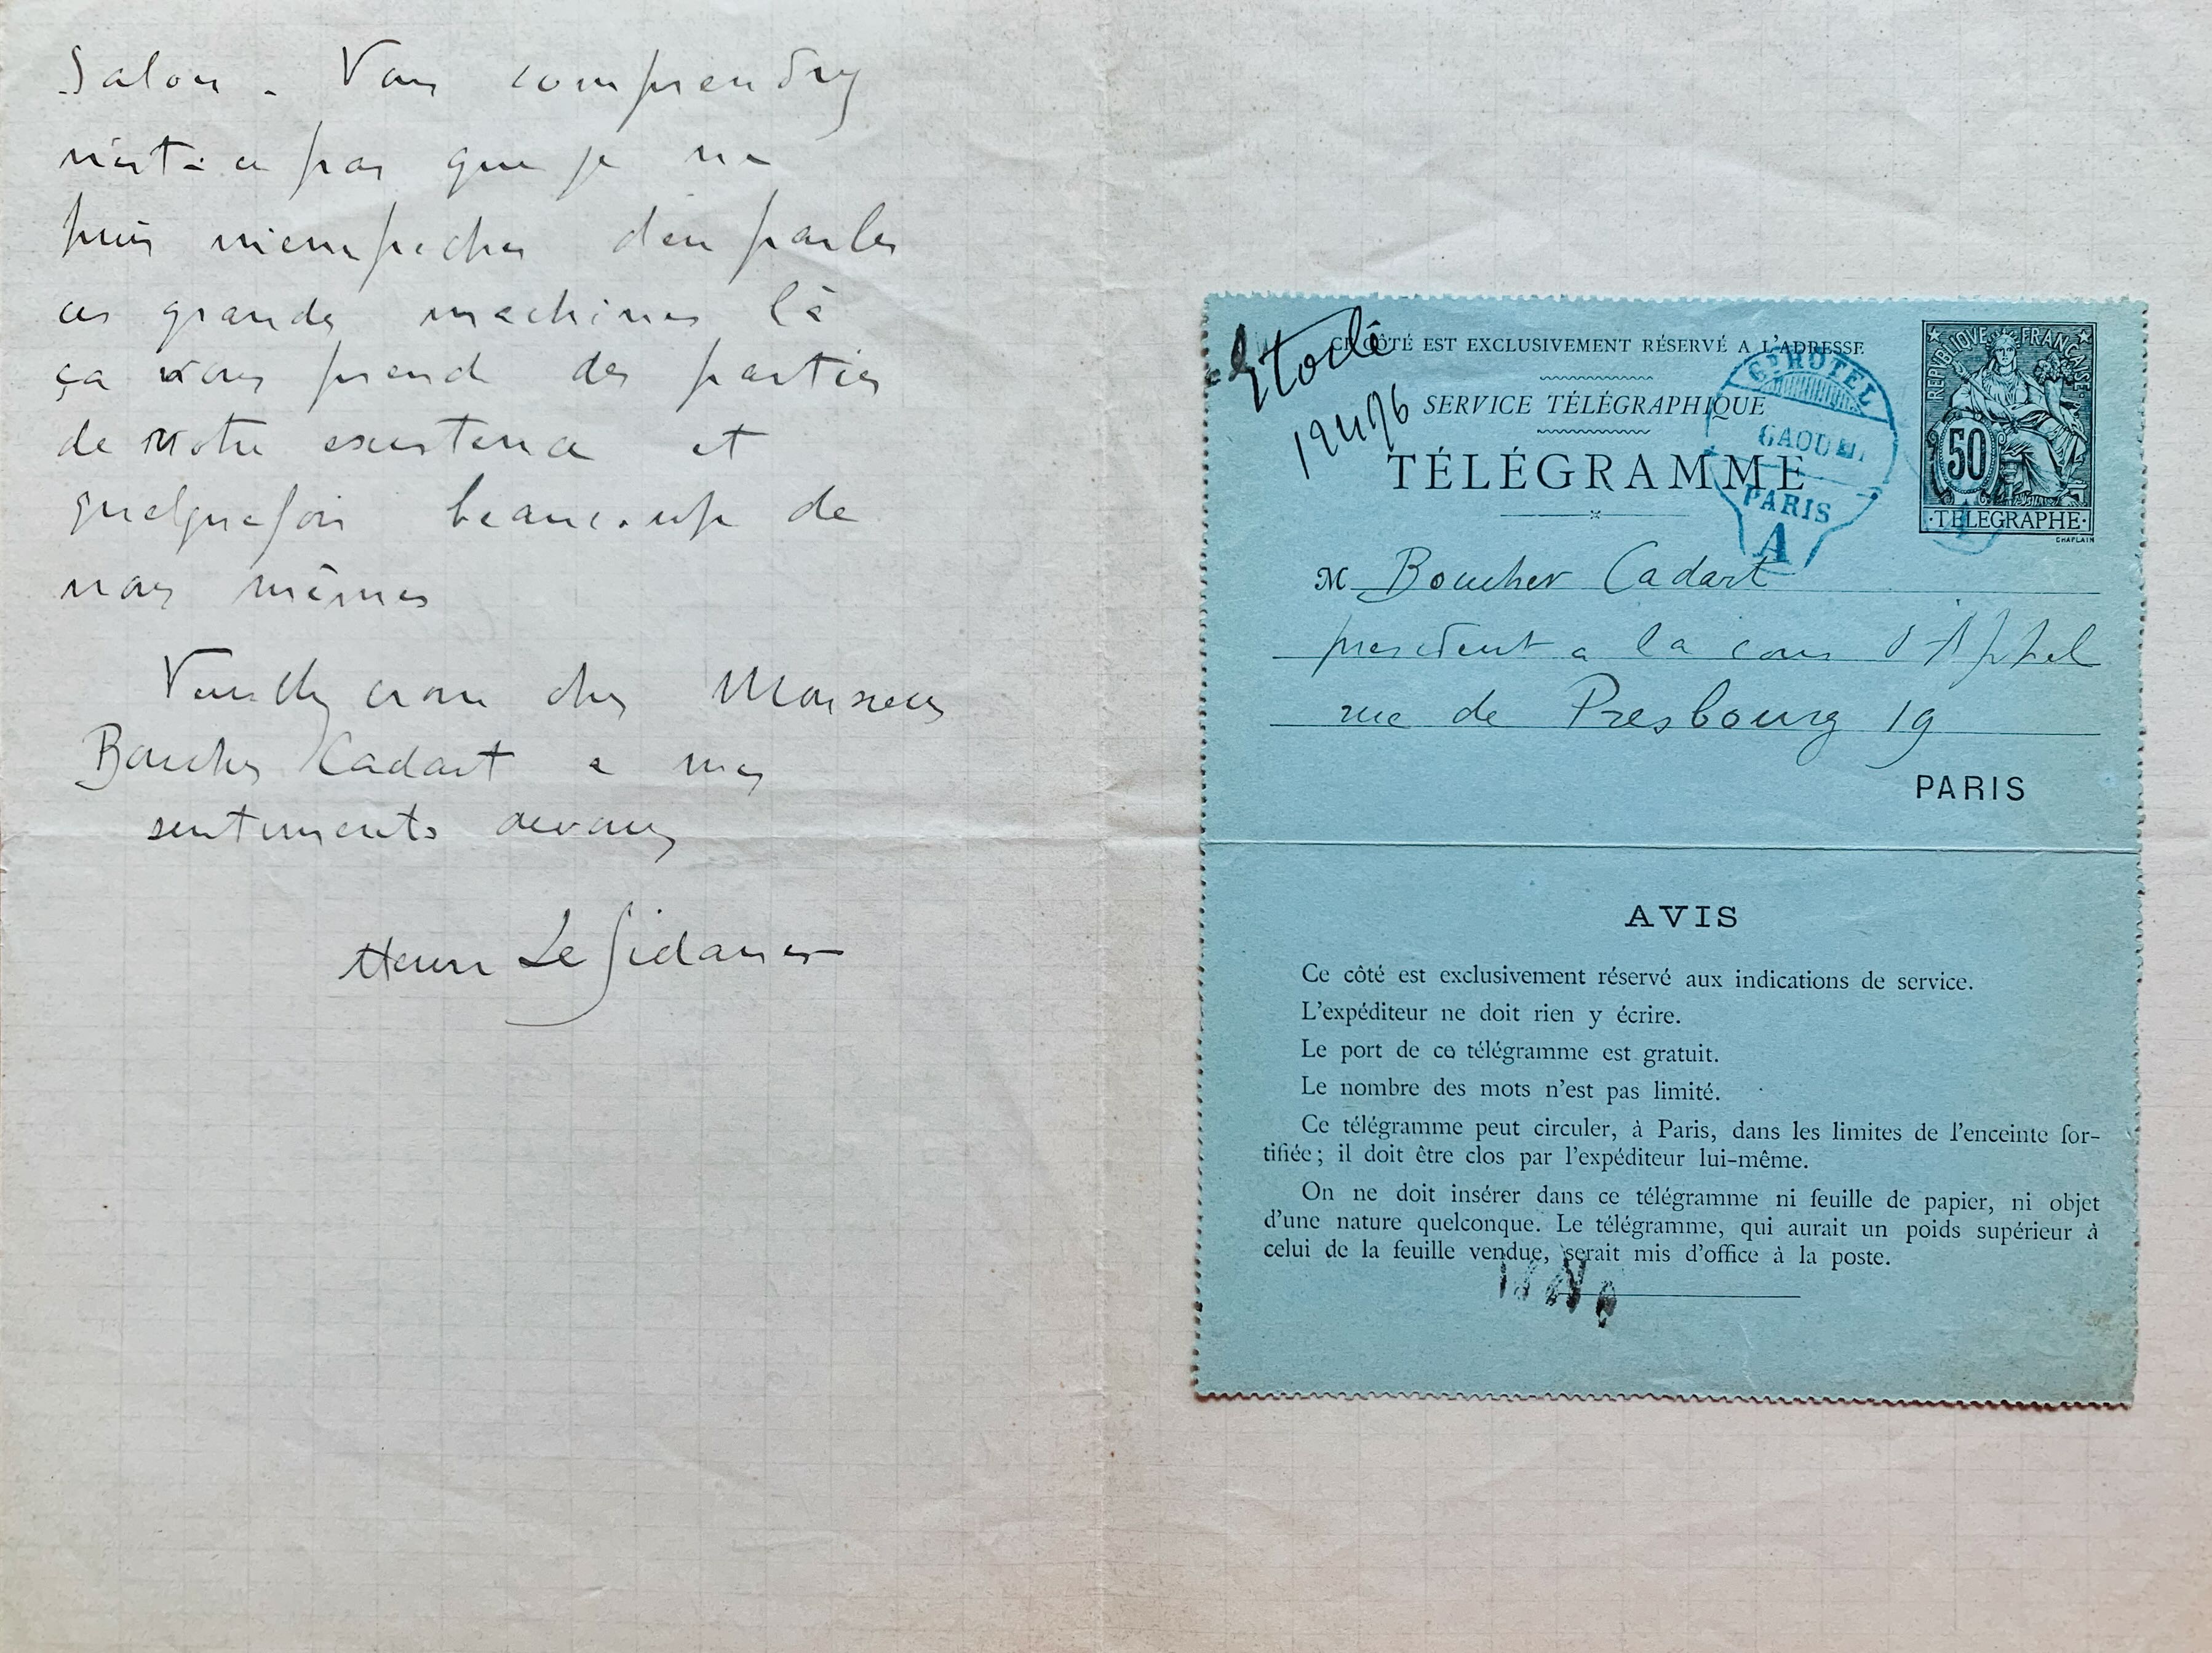 Salon. Vous comprendrez
n'est-ce pas que je ne
puis m'empêcher d'en parler
ces grandes machines là
ça vous prend des parties
de notre existence et
quelquefois beaucoup de
nous mêmes
Veuillez croire cher Monsieur
Boucher Cadart a mes
sentiments dévoués
Henri Le Sidaner
Etoile
CE CÔTÉ EST EXCLUSIVEMENT RÉSERVÉ A L'ADRESSE
SERVICE TÉLÉGRAPHIQUE
TÉLÉGRAMME
Gd HOTEL
PARIS
A
RÉPUBLIQUE FRANÇAISE
50
·TÉLÉGRAPHE·
CHAPLAIN
M Boucher Cadart
president a la cour d'Appel
rue de Presbourg 19
PARIS
AVIS
Ce côté est exclusivement réservé aux indications de service.
L'expéditeur ne doit rien y écrire.
Le port de ce télégramme est gratuit.
Le nombre des mots n'est pas limité.
Ce télégramme peut circuler, à Paris, dans les limites de l'enceinte for-
tifiée; il doit être clos par l'expéditeur lui-même.
On ne doit insérer dans ce télégramme ni feuille de papier, ni objet
d'une nature quelconque. Le télégramme, qui aurait un poids supérieur à
celui de la feuille vendue, serait mis d'office à la poste.